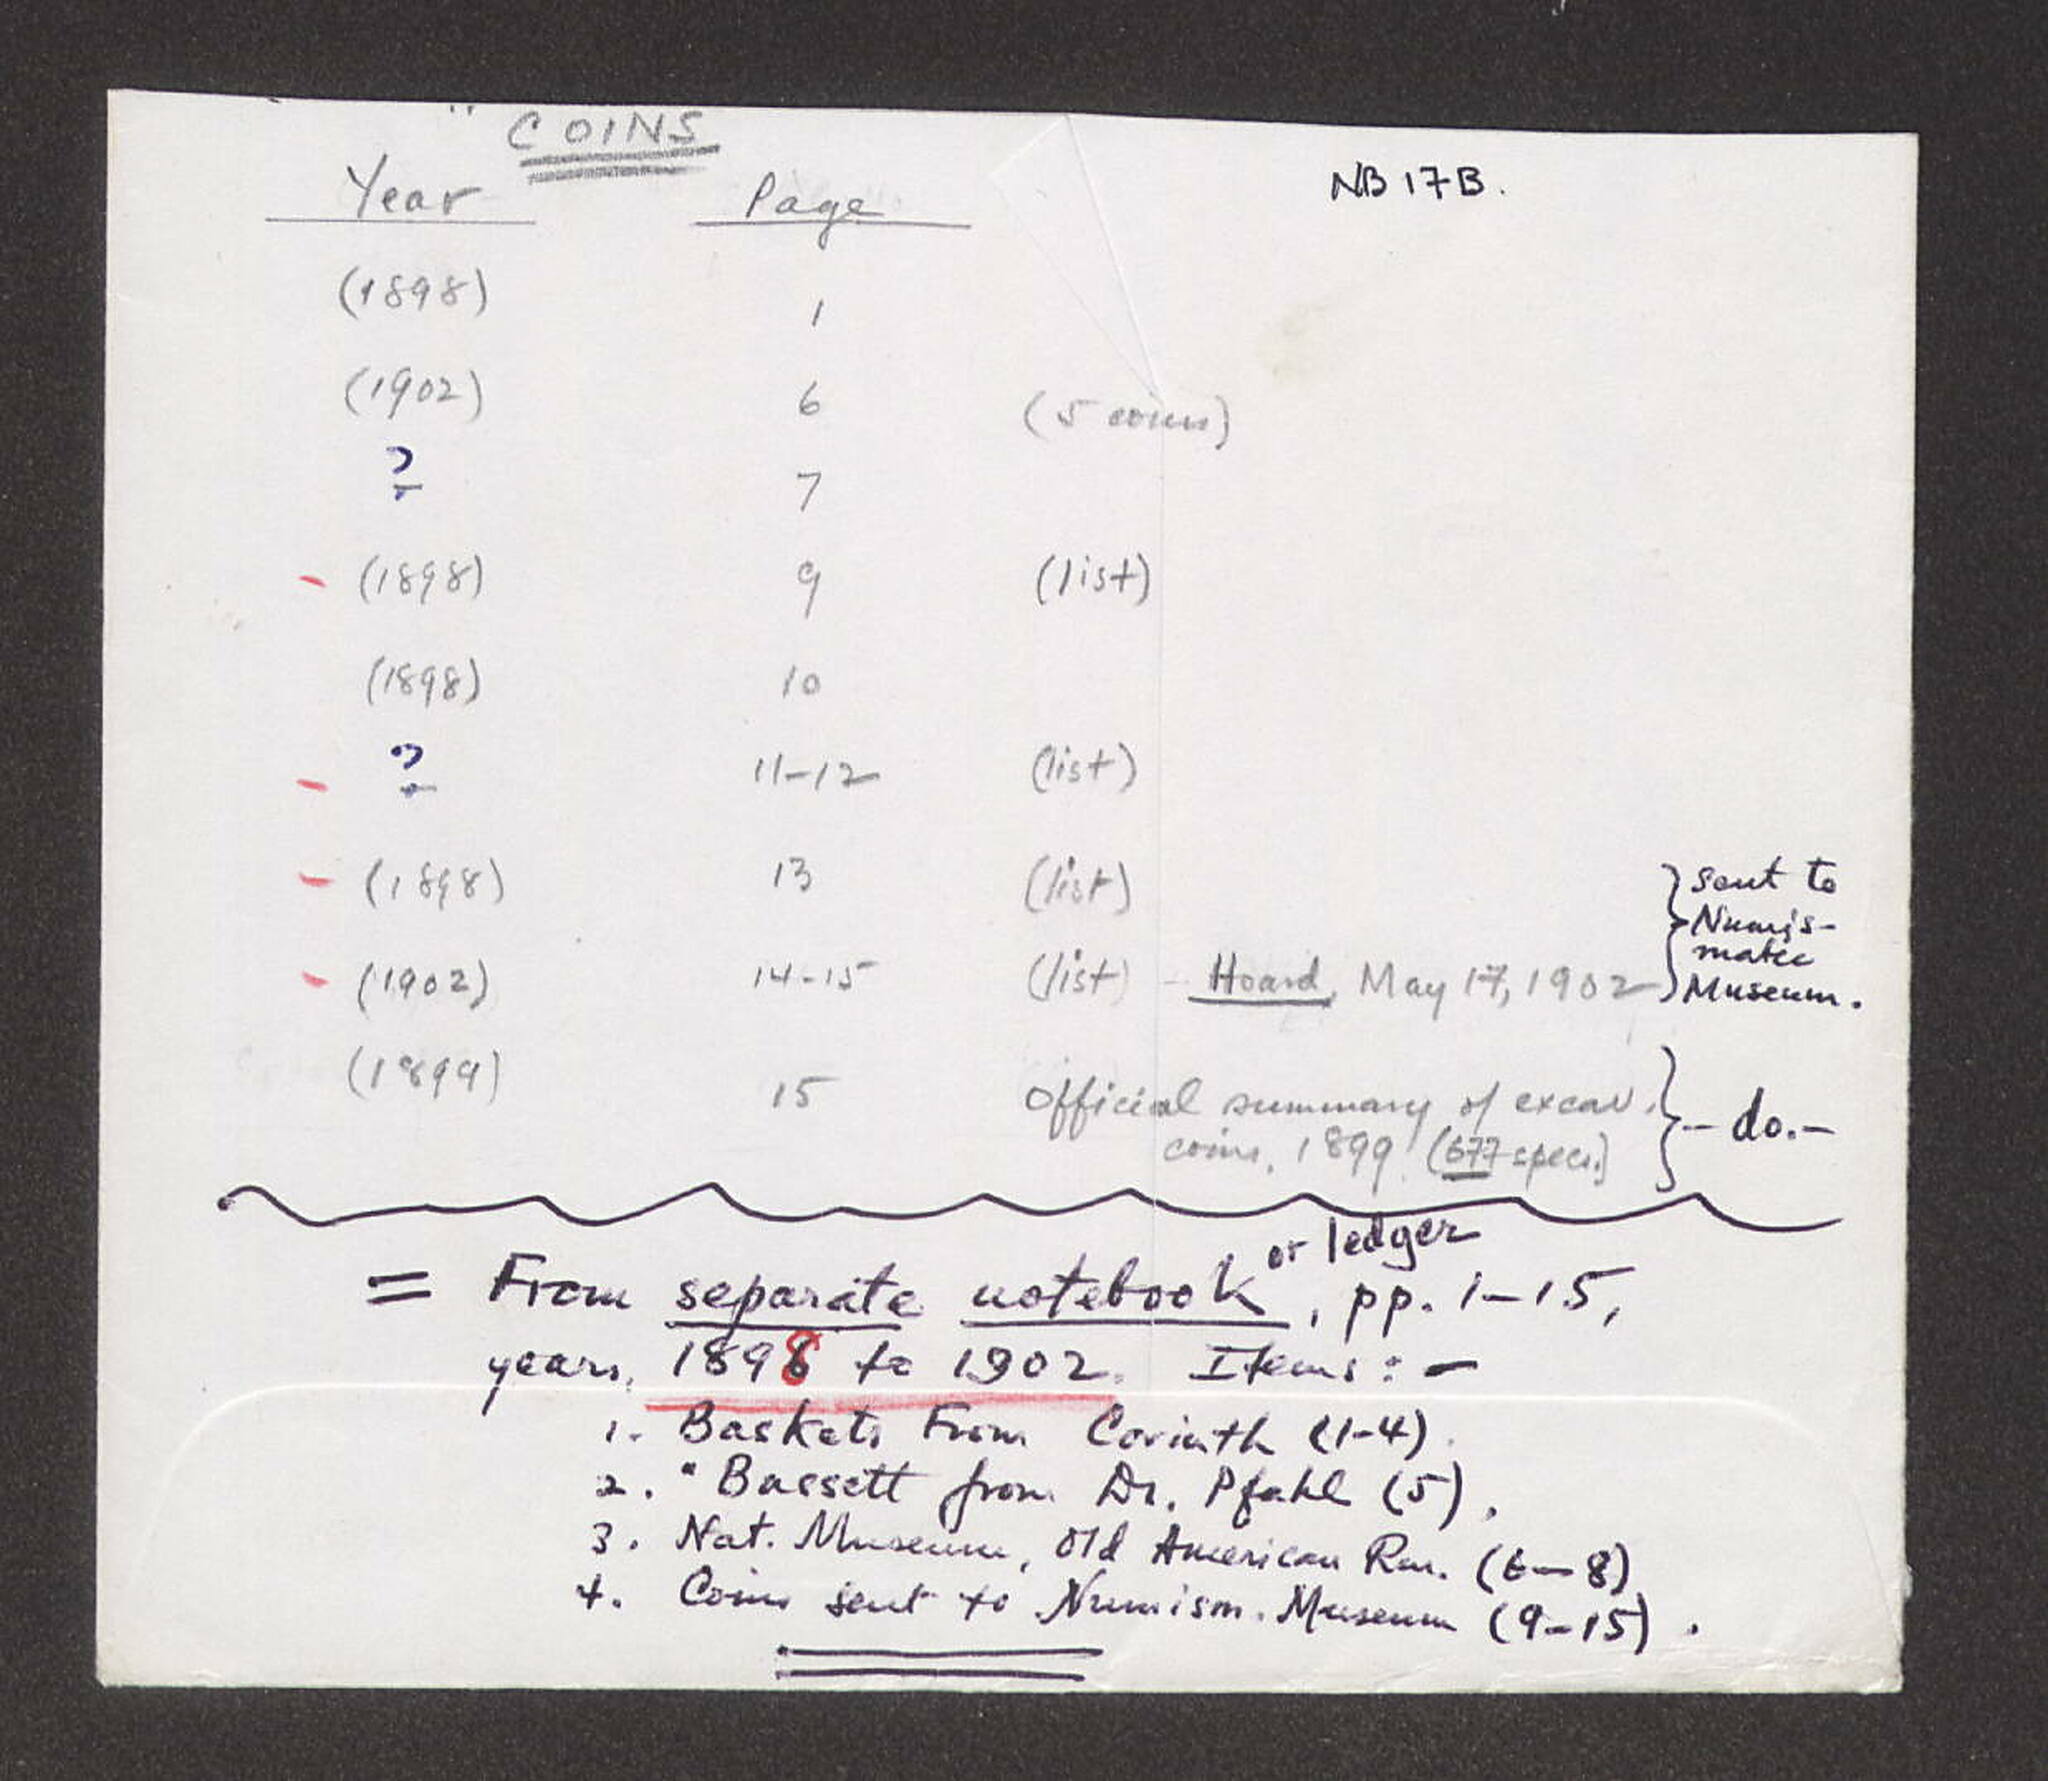 COINS
NB 17B.
Year Page
(1898) 1
(1902) 6 (5 coins)
? 7
- (1898) 9 (list)
(1898) 10
- ? 11-12 (list)
- (1898) 13 (list)
- (1902) 14-15 (list) - Hoard, May 17, 1902
} sent to
Numis-
matic
Museum.
(1899) 15 Official summary of excav.
coins, 1899. (677 specs.)
} - do. -
= From separate notebook or ledger, pp. 1-15,
years, 1898 to 1902. Items: -
1. Baskets From Corinth (1-4).
2. " Bassett from Dr. Pfahl (5).
3. Nat. Museum, Old American Rm. (6-8)
4. Coins sent to Numism. Museum (9-15).